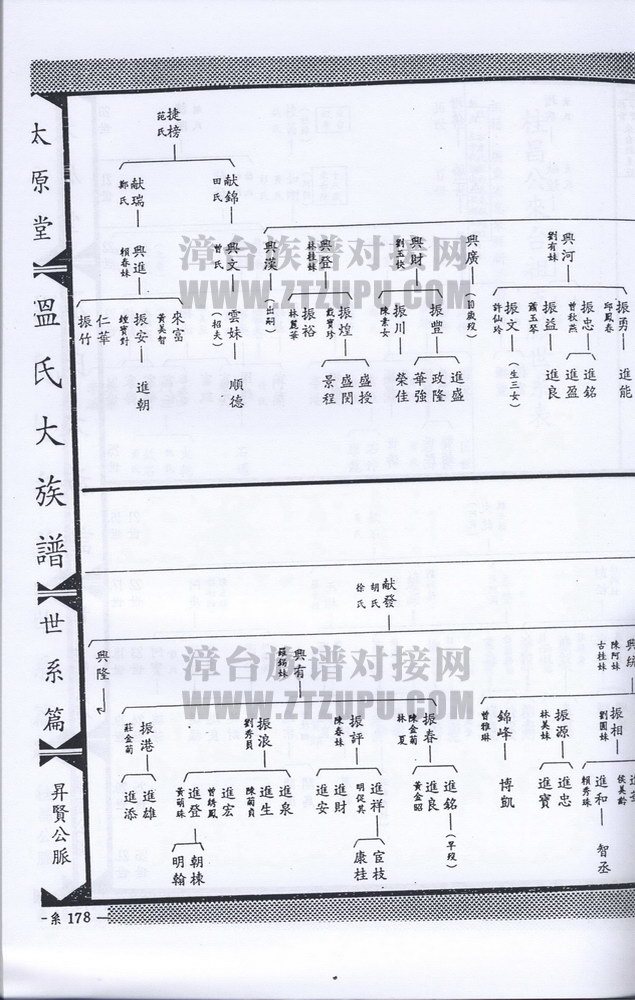 太原堂
溫氏大族譜
世系篇
昇賢公脈
-系 178-
捷榜
范氏
献錦
田氏
献瑞
鄭氏
興河
劉有妹
興廣
(囝歲歿)
興財
興登
林桂妹
興漢
(出嗣)
興文
曾氏
興進
賴春妹
振勇
邱鳳春
振忠
曾秋燕
振益
蕭玉琴
振文
許仙玲
(生三女)
振豐
振川
陳素女
振煌
戴寶珍
振裕
林麗華
雲妹
(招夫)
來富
黃美智
振安
鍾寶對
仁華
振竹
進能
進銘
進盈
進良
進盛
政隆
華強
榮佳
盛授
盛閔
景程
順德
進朝
献發
胡氏
徐氏
興統
陳阿妹
古桂妹
興有
羅錫妹
興隆
振相
劉圓妹
振源
林美妹
錦峰
曾雅琳
振春
陳金菊
林夏
振評
陳春妹
振浪
劉秀員
振港
莊金菊
侯美齡
進和
賴秀珠
進忠
進寶
博凱
進銘
(早歿)
進良
黃金昭
進祥
明從其
進財
進安
進泉
進生
陳菊貞
進宏
曾綉鳳
進登
黃萌珠
進雄
進添
智丞
宦枝
康桂
朝棟
明翰
漳台族谱对接网
WWW.ZTZUPU.COM
漳台族谱对接网
WWW.ZTZUPU.COM